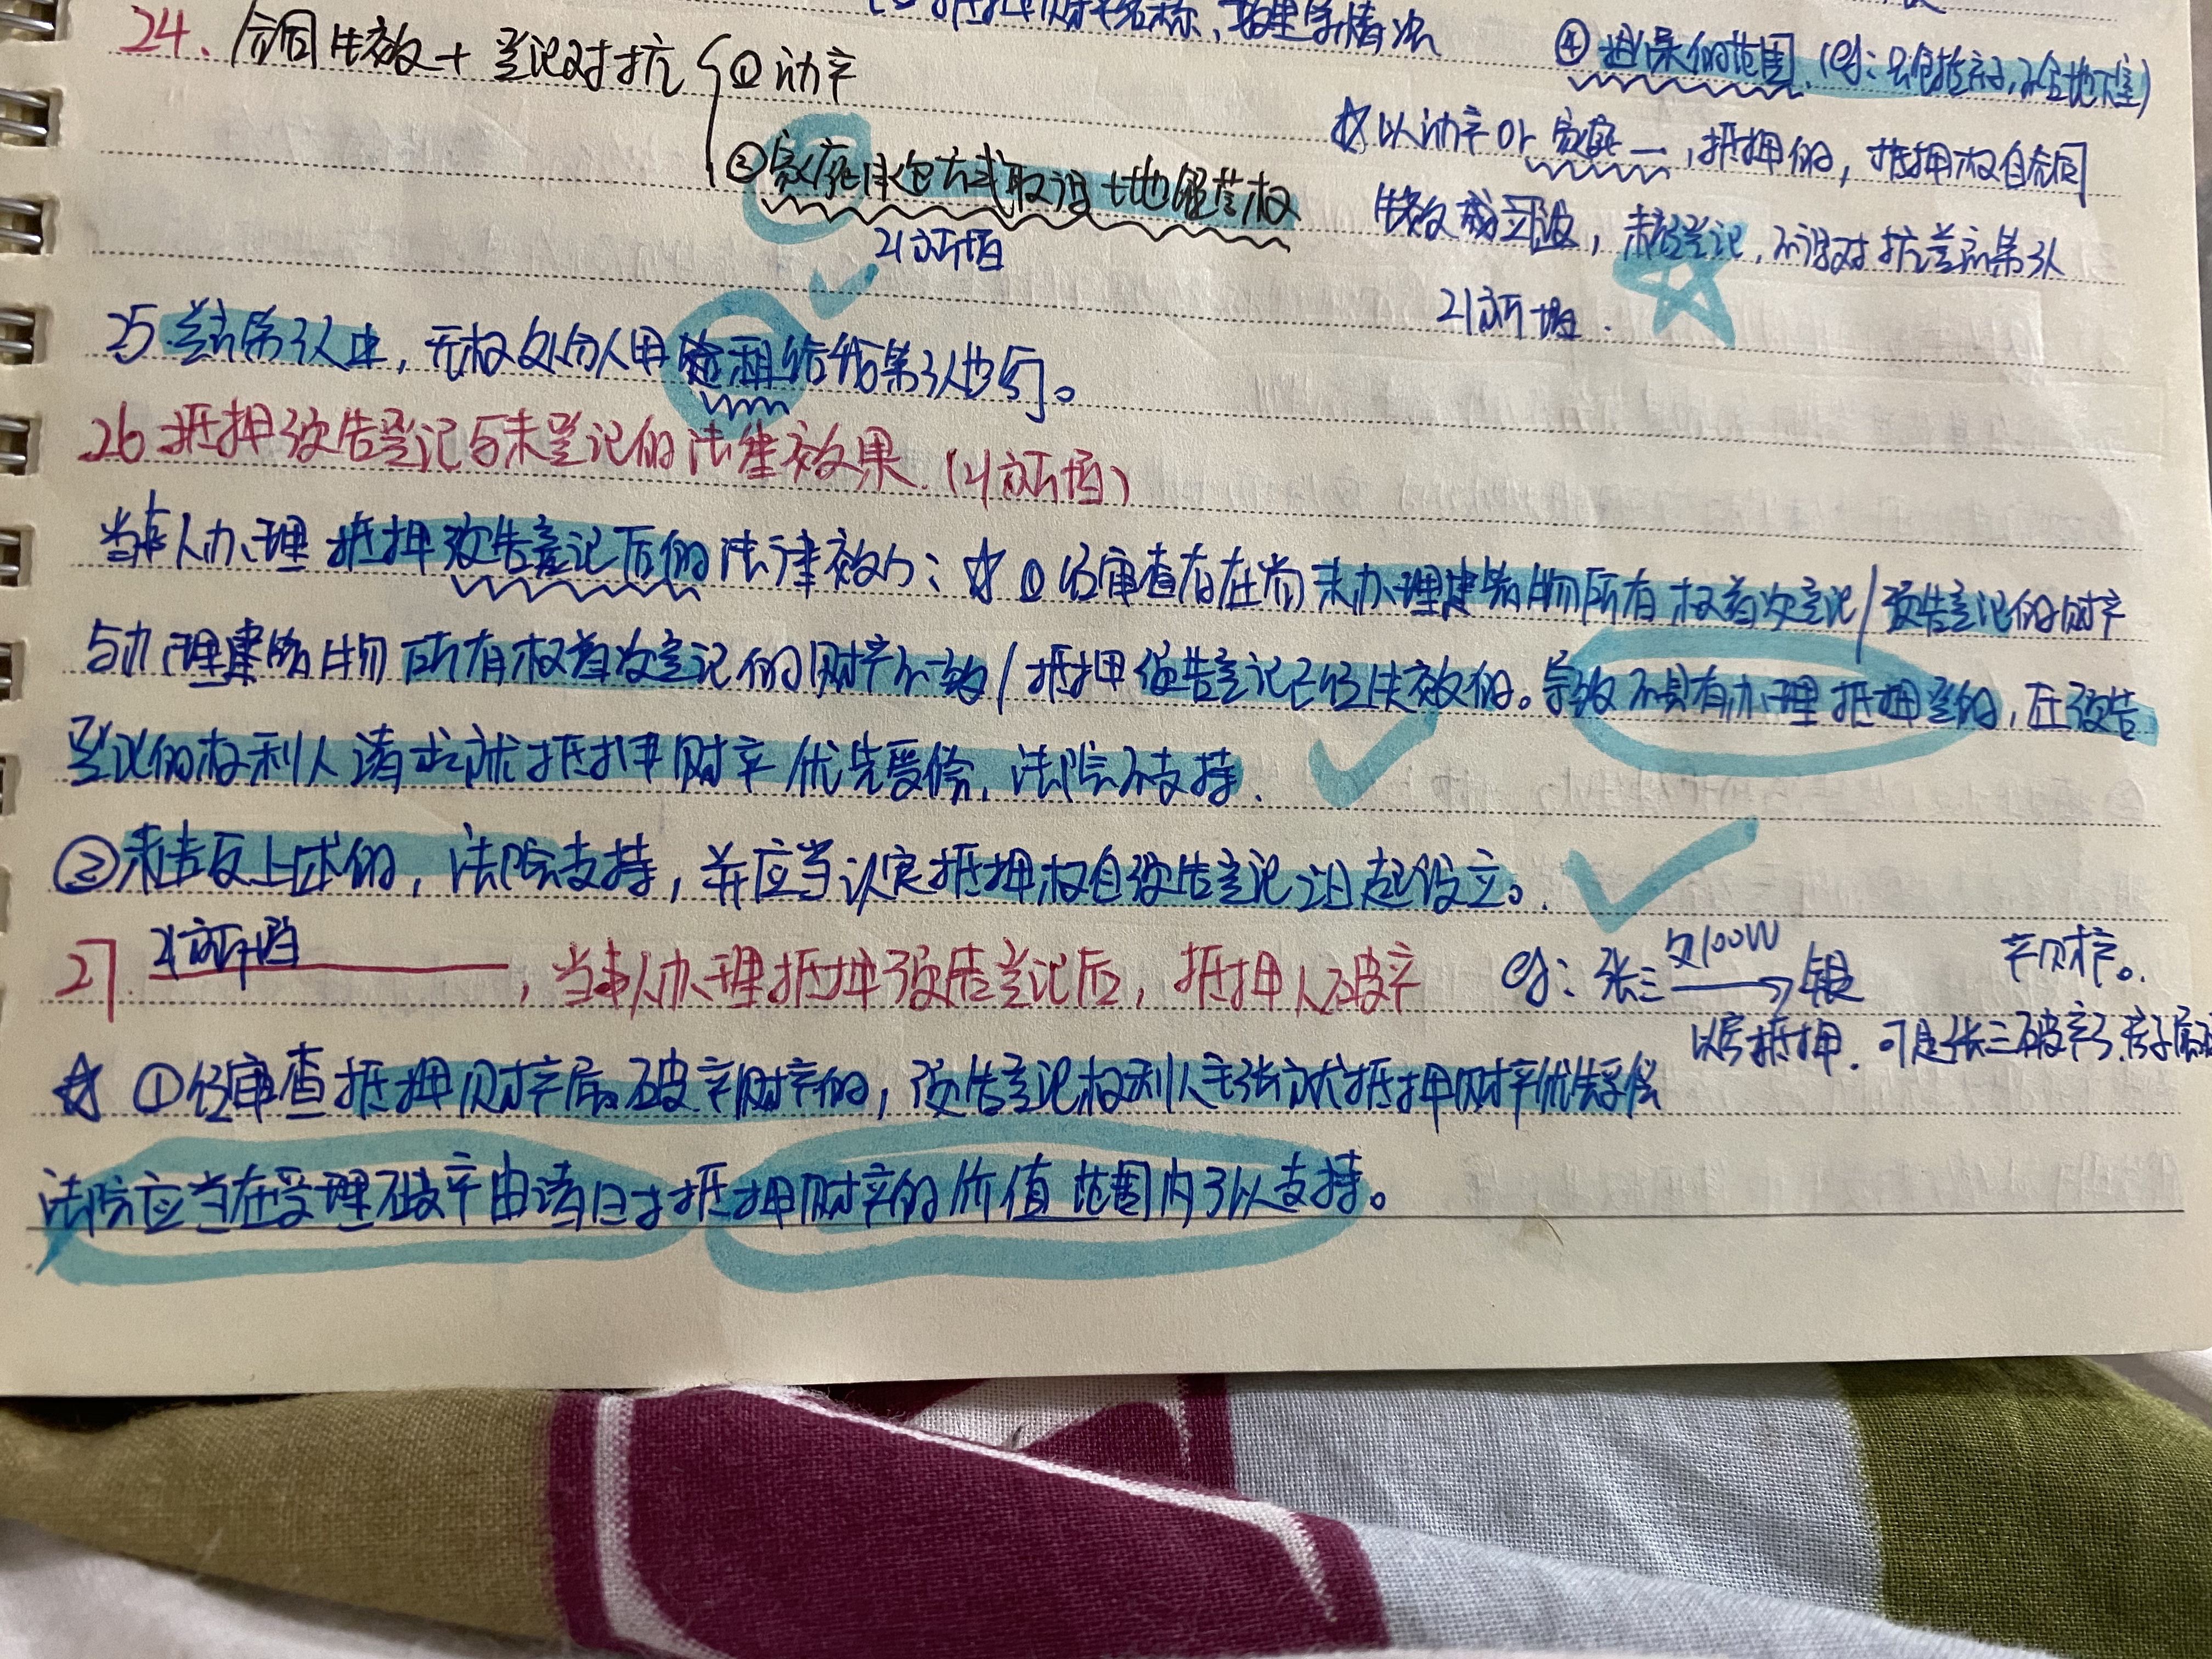 抵押财产名称、数量等情况
24. 合同生效+登记对抗 ①动产
④担保的范围.(eg:只包括主物,不含地下室)
②家庭承包方式取得土地经营权
21新增
☆以动产or家庭—,抵押的,抵押权自合同
生效成立设,未经登记,不得对抗善意第3人
21新增.
25.善意第3人中,无权处分人用 租给第3人也可。
26.抵押预告登记与未登记的法律效果.(21新增)
当事人办理抵押预告登记后的法律效力:☆①经审查存在尚未办理建筑物所有权首次登记/预告登记的财产
与办理建筑物所有权首次登记的财产不一致/抵押预告登记已经失效的。导致不具有办理抵押登的,在预告
登记的权利人请求就抵押财产优先受偿,法院不支持.
②未违反上述的,法院支持,并应当认定抵押权自预告登记之日起设立。
27. 21新增 ,当事人办理抵押预告登记后,抵押人破产
eg:张三 欠100W 银
产财产。
以房抵押.可是张三破产了.房子属破
☆ ①经审查抵押财产属破产财产的,预告登记权利人主张就抵押财产优先受偿
法院应当在受理破产申请日时抵押财产的价值范围内予以支持。